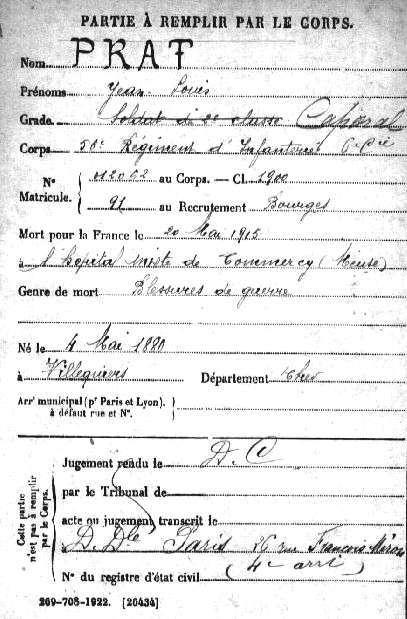 PARTIE À REMPLIR PAR LE CORPS.
Nom PRAT
Prénoms Jean Louis
Grade Soldat de 2e classe Caporal
Corps 50e Régiment d'Infanterie Cie
N° Matricule. 012052 au Corps. — Cl. 1900
91 au Recrutement Bourges
Mort pour la France le 20 Mai 1915
à l'hôpital mixte de Commercy (Meuse)
Genre de mort Blessures de guerre
Né le 4 Mai 1880
à Villequiers Département Cher
Arrt municipal (pr Paris et Lyon). à défaut rue et N°.
Cette partie n'est pas à remplir par le Corps.
Jugement rendu le D. C
par le Tribunal de
acte ou jugement transcrit le
D. Dle Paris 26 rue François Miron
(4e arrt)
N° du registre d'état civil
269-708-1922. [26434]